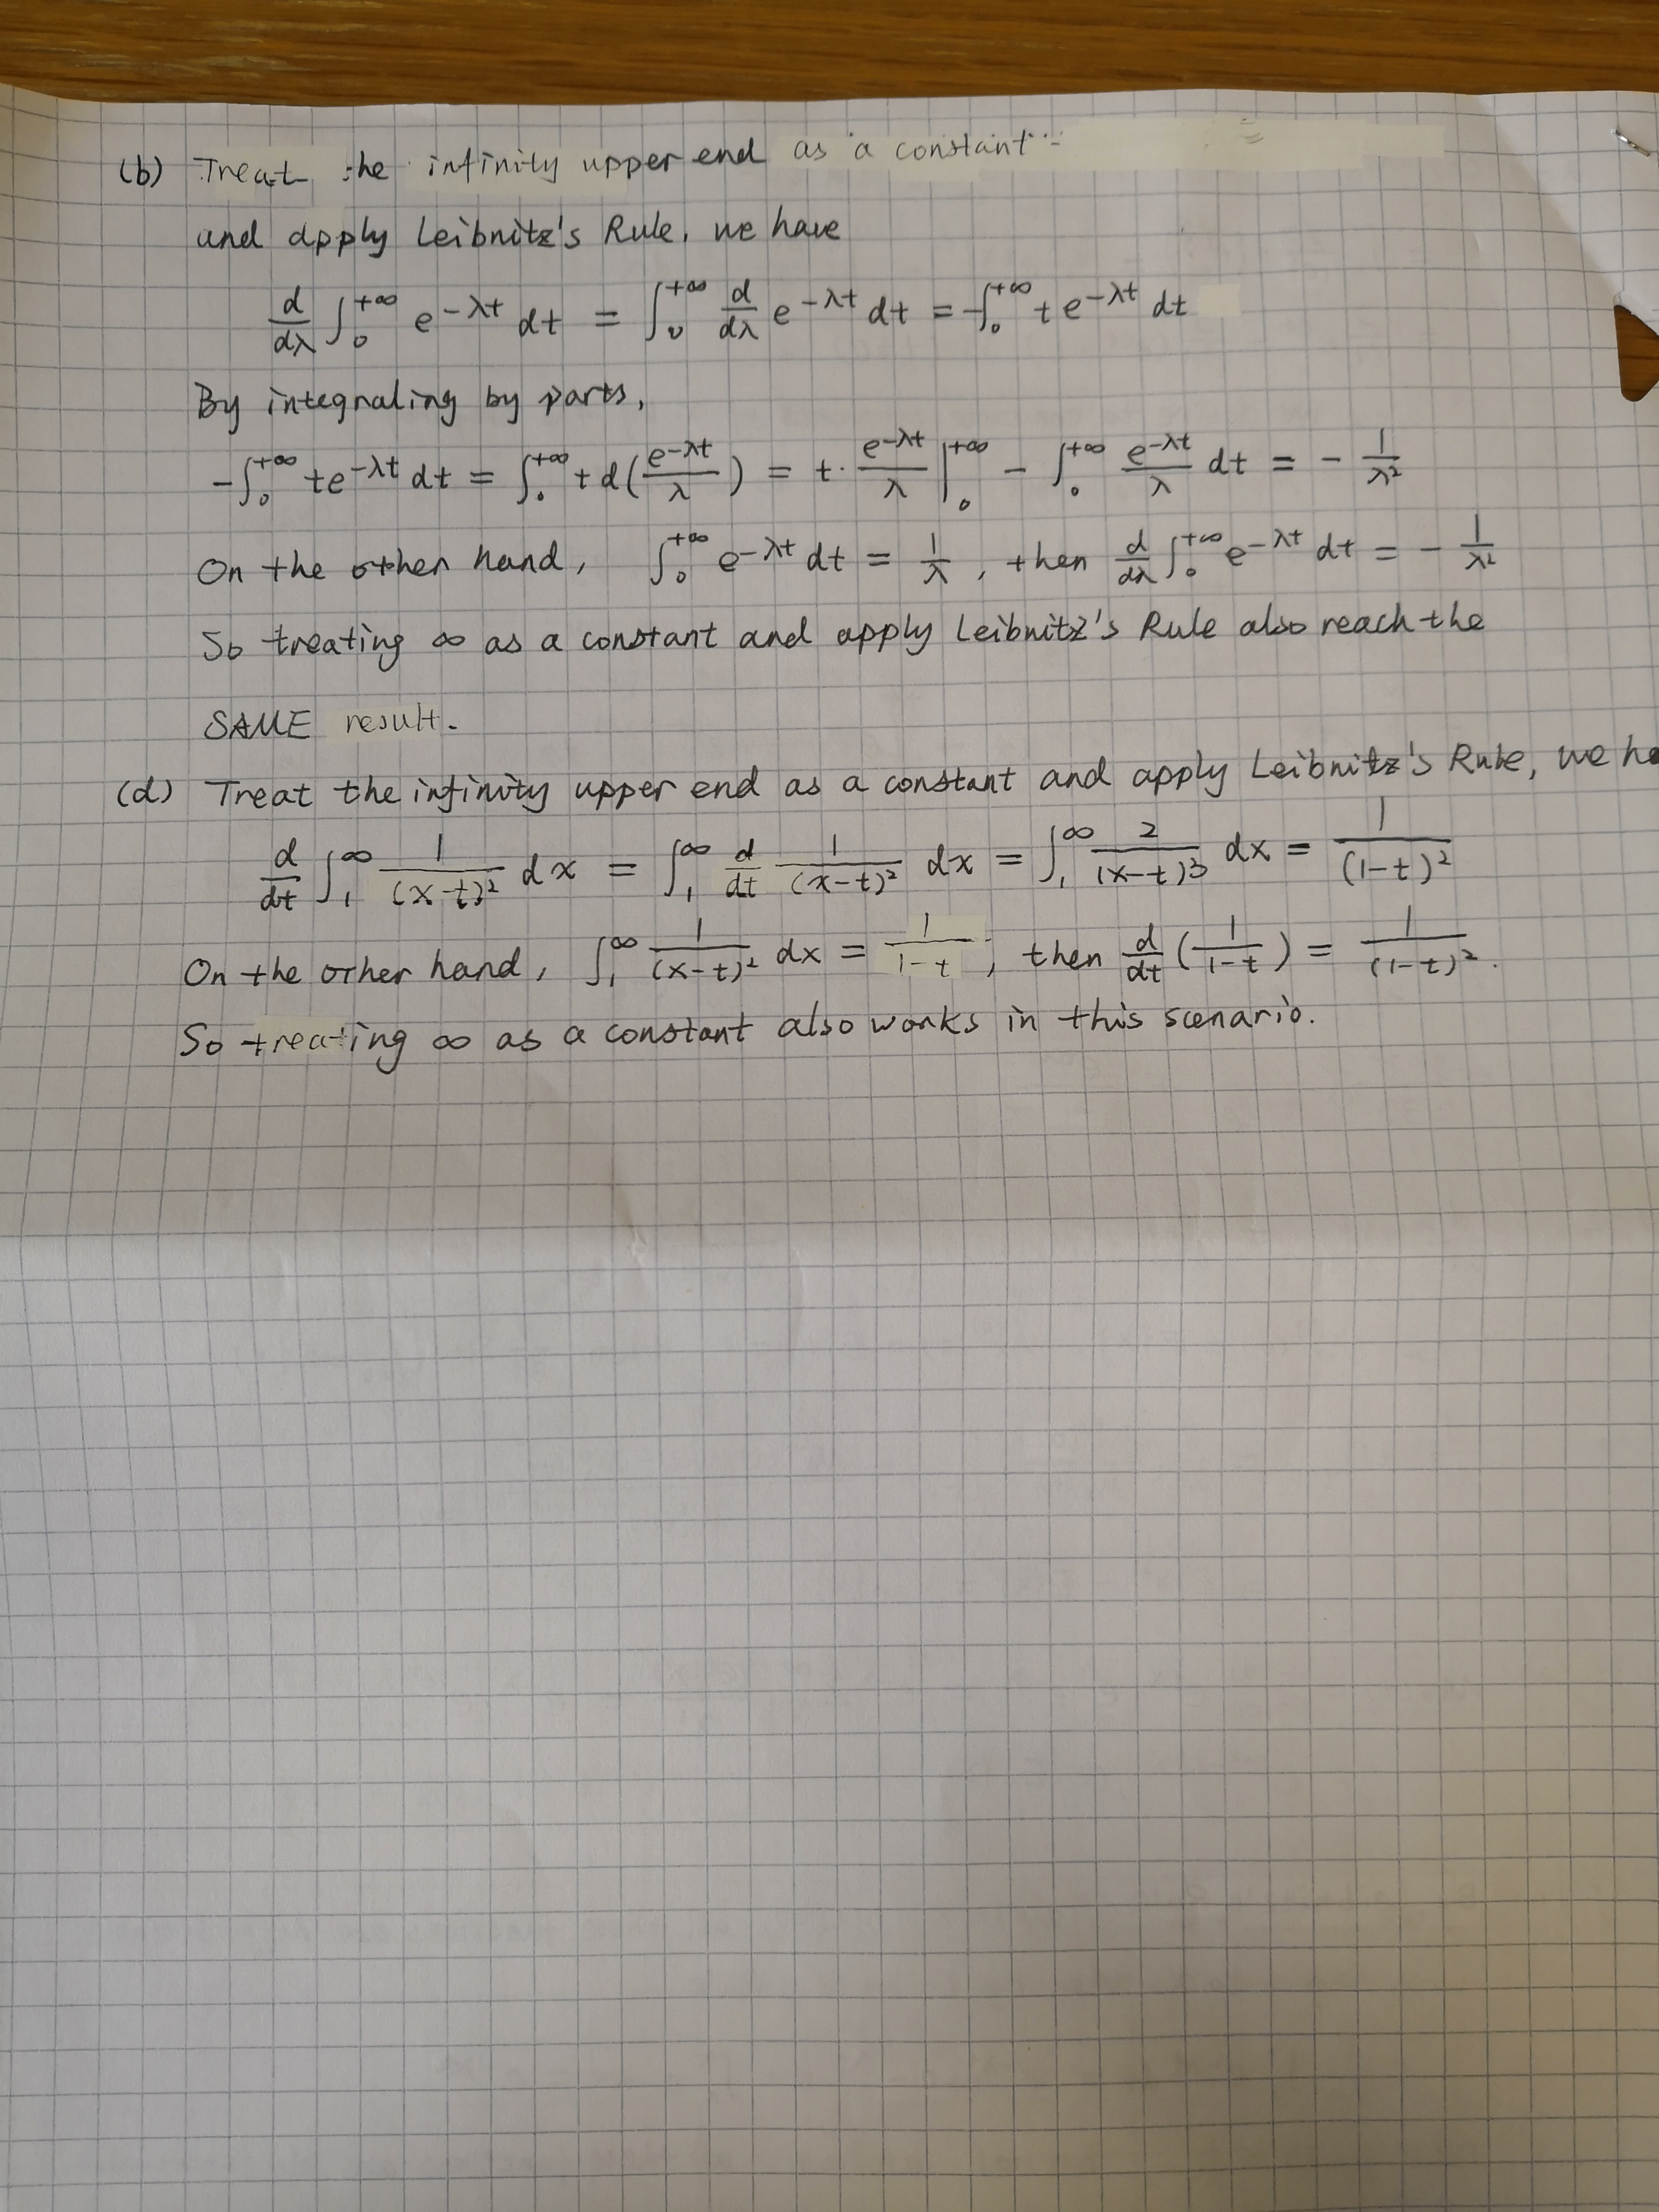 (b) Treat the infinity upper end as a constant
and apply Leibnitz's Rule, we have
d/dλ ∫₀^{+∞} e^{-λt} dt = ∫₀^{+∞} d/dλ e^{-λt} dt = -∫₀^{+∞} t e^{-λt} dt
By integraling by parts,
-∫₀^{+∞} te^{-λt} dt = ∫₀^{+∞} t d(e^{-λt}/λ) = t · e^{-λt}/λ |₀^{+∞} - ∫₀^{+∞} e^{-λt}/λ dt = - 1/λ²
On the other hand, ∫₀^{+∞} e^{-λt} dt = 1/λ, then d/dλ ∫₀^{+∞} e^{-λt} dt = - 1/λ²
So treating ∞ as a constant and apply Leibnitz's Rule also reach the
SAME result.
(d) Treat the infinity upper end as a constant and apply Leibnitz's Rule, we ha
d/dt ∫₁^∞ 1/(x-t)² dx = ∫₁^∞ d/dt 1/(x-t)² dx = ∫₁^∞ 2/(x-t)³ dx = 1/(1-t)²
On the other hand, ∫₁^∞ 1/(x-t)² dx = 1/(1-t), then d/dt (1/(1-t)) = 1/(1-t)².
So treating ∞ as a constant also works in this scenario.